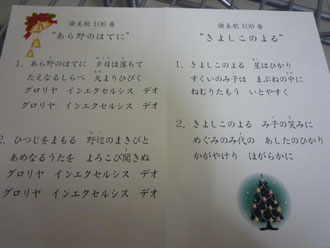 讃美歌 106番
“あら野のはてに”
1. あら野のはてに 夕日は落ちて
たえなるしらべ 天よりひびく
グロリヤ インエクセルシス デオ
グロリヤ インエクセルシス デオ
2. ひつじをまもる 野辺のまきびと
あめなるうたを よろこび聞きぬ
グロリヤ インエクセルシス デオ
グロリヤ インエクセルシス デオ
讃美歌 109番
“きよしこのよる”
1. きよしこのよる 星はひかり
すくいのみ子は まぶねの中に
ねむりたもう いとやすく
2. きよしこのよる み子の笑みに
めぐみのみ代の あしたのひかり
かがやけり ほがらかに